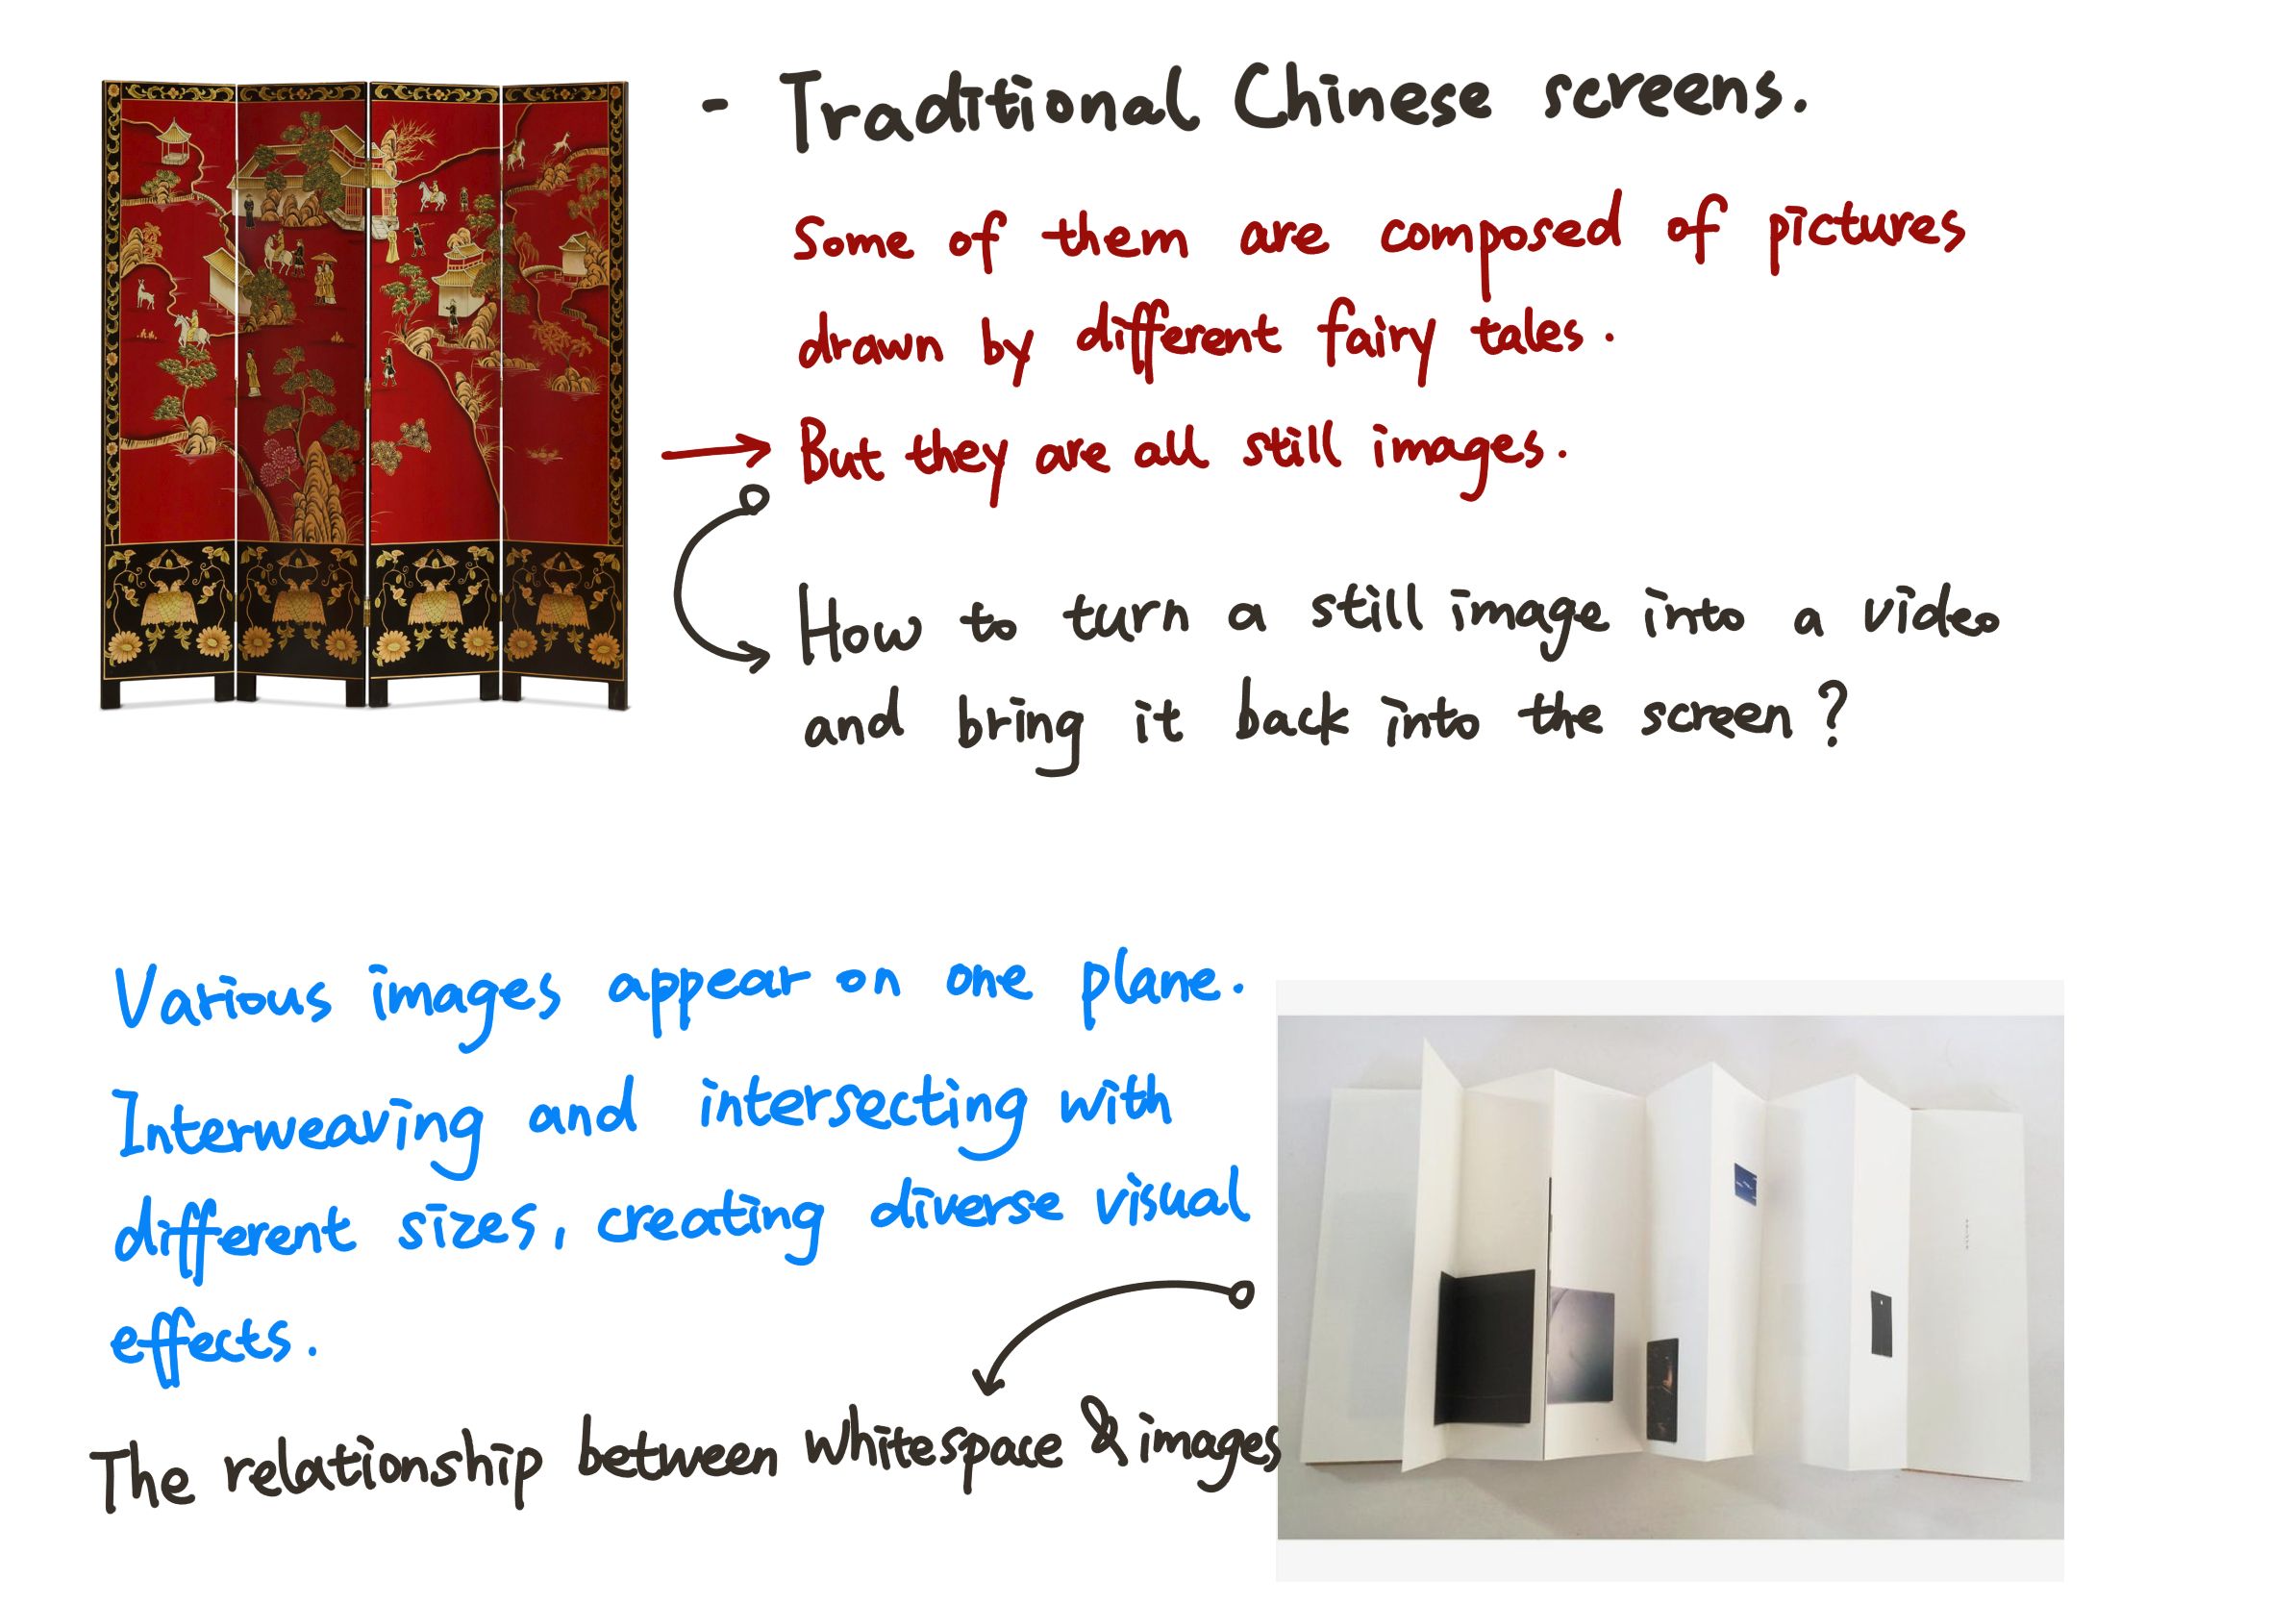 - Traditional Chinese screens.
Some of them are composed of pictures
drawn by different fairy tales.
But they are all still images.
How to turn a still image into a video
and bring it back into the screen?
Various images appear on one plane.
Interweaving and intersecting with
different sizes, creating diverse visual
effects.
The relationship between whitespace & images